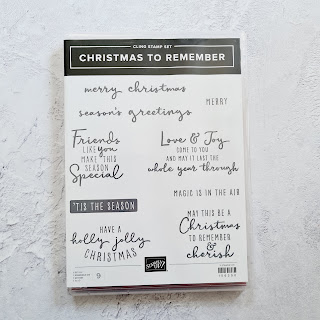 CLING STAMP SET
CHRISTMAS TO REMEMBER
merry christmas
MERRY
season's greetings
Friends
LIKE you
MAKE THIS
SEASON
Special
Love & Joy
COME TO YOU
AND MAY IT LAST THE
whole year through
MAGIC IS IN THE AIR
'TIS THE SEASON
HAVE A
holly jolly
CHRISTMAS
MAY THIS BE A
Christmas
TO REMEMBER
&
cherish
9
STAMPIN' UP!